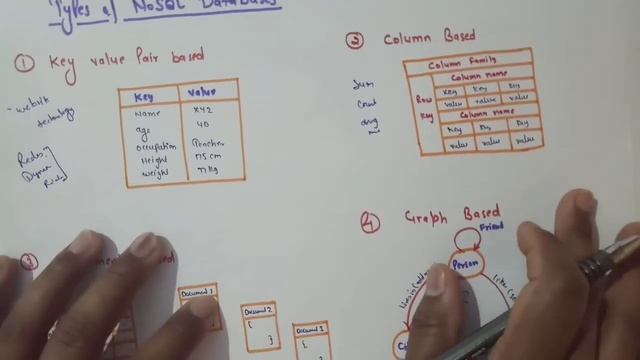 Types of NoSQL Databases
① Key value Pair based
Key Value
Name XYZ
age 40
Occupation Teacher
Height 175 cm
weight 77 kg
- website
technology
Redis,
Dynamo
Riak
② Column Based
Column Family
Row Key
Column name
Key Key Key
value value value
Column name
Key Key Key
value value value
Sum
Count
avg
③
Document 1
Document 2
{
}
Document 3
{
④ Graph Based
Friend
Person